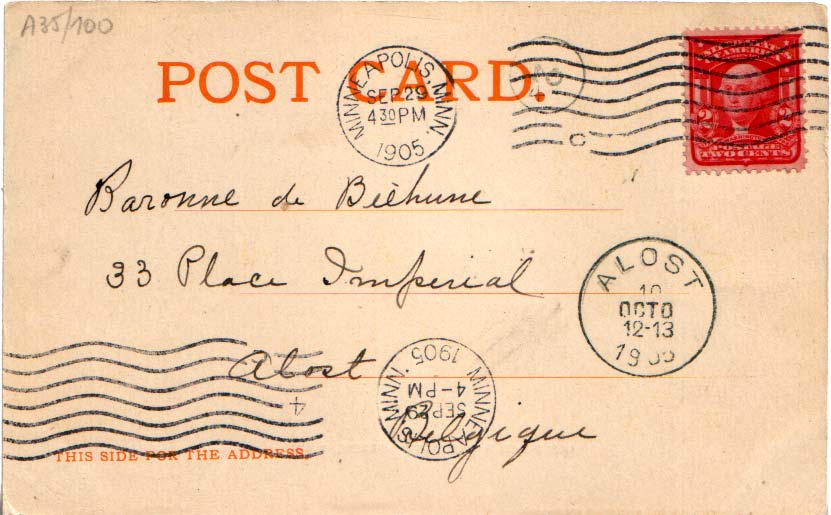 A35/100
POST CARD.
MINNEAPOLIS, MINN.
SEP 29
4 30 PM
1905
C
2 2
TWO CENTS
Baronne de Bièhune
33 Place Imperial
ALOST
10
OCTO
12-13
19
Alost
MINNEAPOLIS, MINN.
SEP 29
4-PM
1905
4
Belgique
THIS SIDE FOR THE ADDRESS.